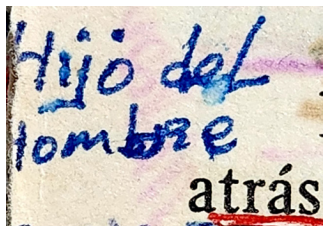 Hijo del
Hombre
atrás